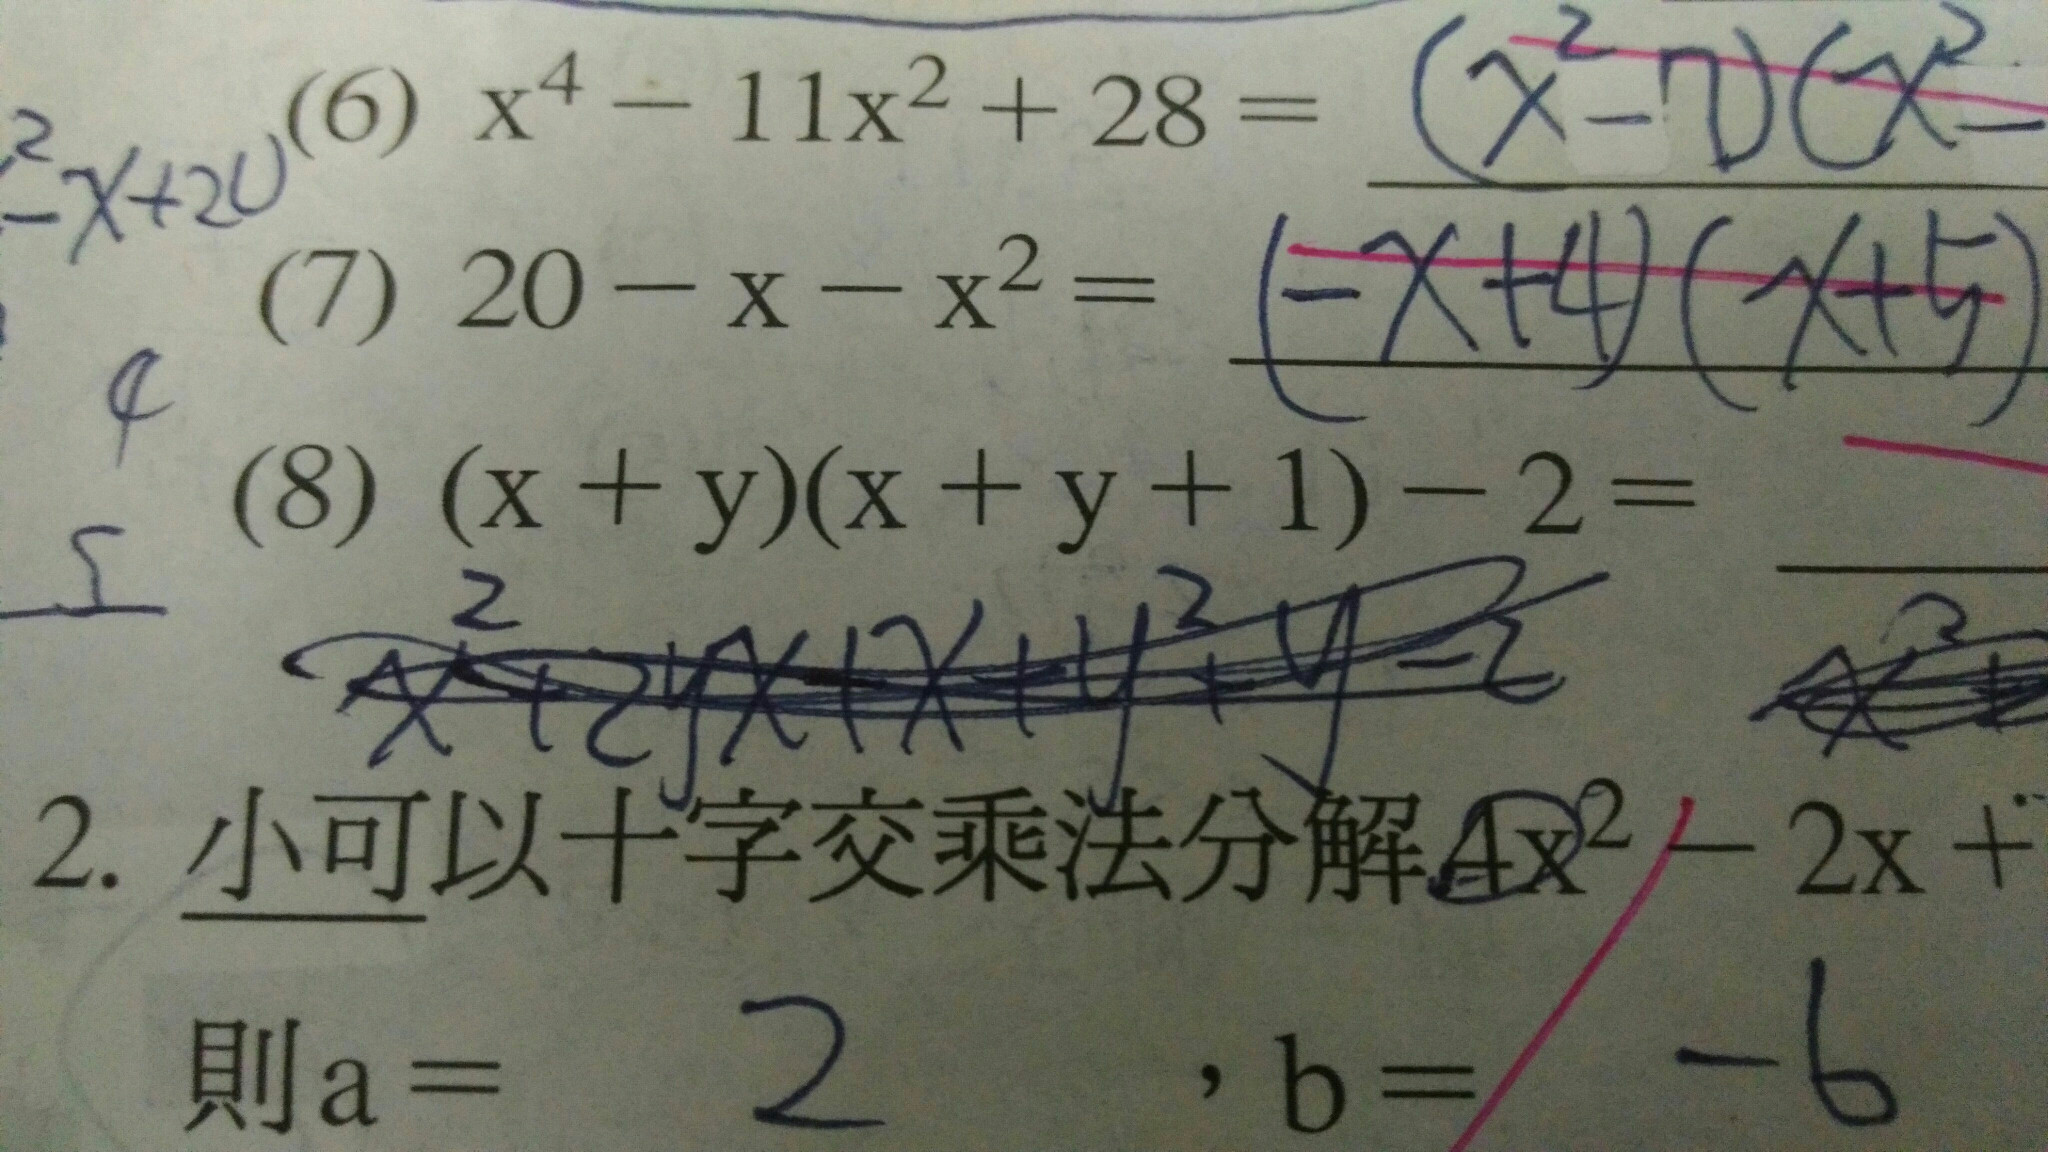 (6) x⁴ − 11x² + 28 = (x²−7)(x²−
²−x+20
(7) 20 − x − x² = (−x+4)(x+5)
4
(8) (x + y)(x + y + 1) − 2 =
5
x²+2yx+x+y²+y−2
x²+
2. 小可以十字交乘法分解4x² − 2x +
則a = 2 , b = −6